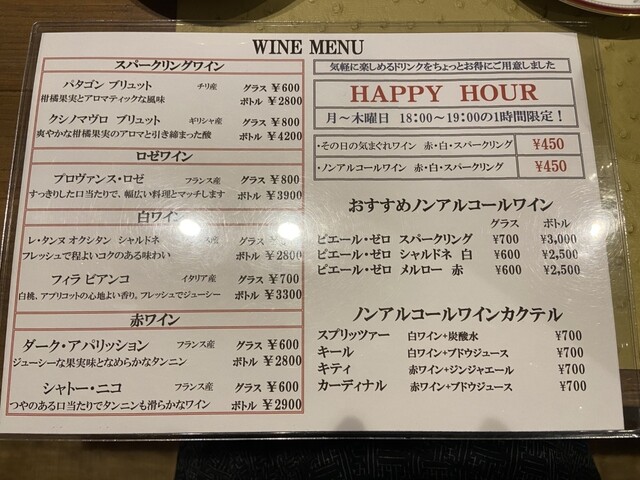 WINE MENU
スパークリングワイン
パタゴン ブリュット チリ産 グラス ¥600
柑橘果実とアロマティックな風味 ボトル ¥2800
クシノマヴロ ブリュット ギリシャ産 グラス ¥800
爽やかな柑橘果実のアロマと引き締まった酸 ボトル ¥4200
ロゼワイン
プロヴァンス・ロゼ フランス産 グラス ¥800
すっきりした口当たりで、幅広い料理とマッチします ボトル ¥3900
白ワイン
レ・タンヌ オクシタン シャルドネ
フレッシュで程よいコクのある味わい ボトル ¥2800
フィラ ビアンコ イタリア産 グラス ¥700
白桃、アプリコットの心地よい香り。フレッシュでジューシー ボトル ¥3300
赤ワイン
ダーク・アパリッション フランス産 グラス ¥600
ジューシーな果実味となめらかなタンニン ボトル ¥2800
シャトー・ニコ フランス産 グラス ¥600
つやのある口当たりでタンニンも滑らかなワイン ボトル ¥2900
気軽に楽しめるドリンクをちょっとお得にご用意しました
HAPPY HOUR
月～木曜日 18:00～19:00の1時間限定!
・その日の気まぐれワイン 赤・白・スパークリング ¥450
・ノンアルコールワイン 赤・白・スパークリング ¥450
おすすめノンアルコールワイン
グラス ボトル
ピエール・ゼロ スパークリング ¥700 ¥3,000
ピエール・ゼロ シャルドネ 白 ¥600 ¥2,500
ピエール・ゼロ メルロー 赤 ¥600 ¥2,500
ノンアルコールワインカクテル
スプリッツァー 白ワイン+炭酸水 ¥700
キール 白ワイン+ブドウジュース ¥700
キティ 赤ワイン+ジンジャエール ¥700
カーディナル 赤ワイン+ブドウジュース ¥700